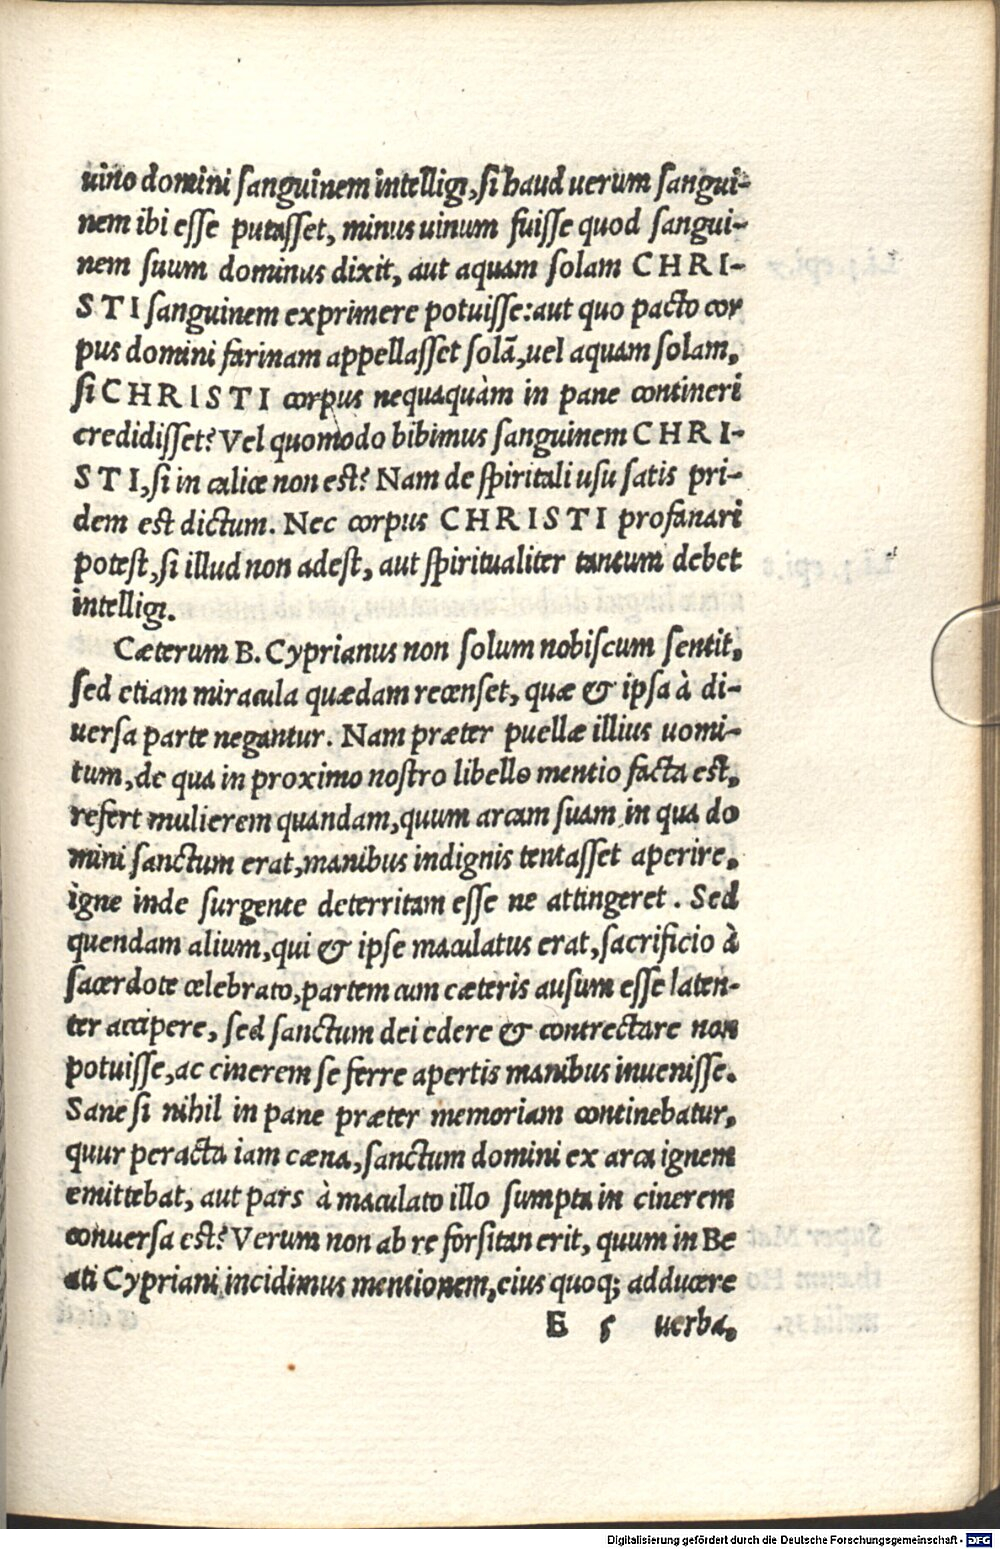 uino domini sanguinem intelligi, si haud uerum sangui-
nem ibi esse putasset, minus uinum fuisse quod sangui-
nem suum dominus dixit, aut aquam solam CHRI-
STI sanguinem exprimere potuisse: aut quo pacto cor
pus domini farinam appellasset solã, uel aquam solam,
si CHRISTI corpus nequaquàm in pane contineri
credidisset? Vel quomodo bibimus sanguinem CHRI-
STI, si in calice non est? Nam de spiritali usu satis pri-
dem est dictum. Nec corpus CHRISTI profanari
potest, si illud non adest, aut spiritualiter tantum debet
intelligi.
Cæterum B. Cyprianus non solum nobiscum sentit,
sed etiam miracula quædam recenset, quæ & ipsa à di-
uersa parte negantur. Nam præter puellæ illius uomi-
tum, de qua in proximo nostro libello mentio facta est,
refert mulierem quandam, quum arcam suam in qua do
mini sanctum erat, manibus indignis tentasset aperire,
igne inde surgente deterritam esse ne attingeret. Sed
quendam alium, qui & ipse maculatus erat, sacrificio à
sacerdote celebrato, partem cum cæteris ausum esse laten-
ter accipere, sed sanctum dei edere & contrectare non
potuisse, ac cinerem se ferre apertis manibus inuenisse.
Sane si nihil in pane præter memoriam continebatur,
quur peracta iam cæna, sanctum domini ex arca ignem
emittebat, aut pars à maculato illo sumpta in cinerem
conuersa est? Verum non ab re forsitan erit, quum in Be
ati Cypriani incidimus mentionem, eius quoq; adducere
E 5 uerba,
Digitalisierung gefördert durch die Deutsche Forschungsgemeinschaft - DFG